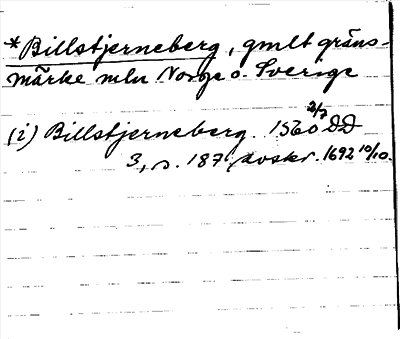 *Billstjerneberg, gmlt gräns-
märke mln Norge o. Sverige
(i) Billstjerneberg. 1560 2/7 DD
3, s. 187, avskr. 1692 10/10.